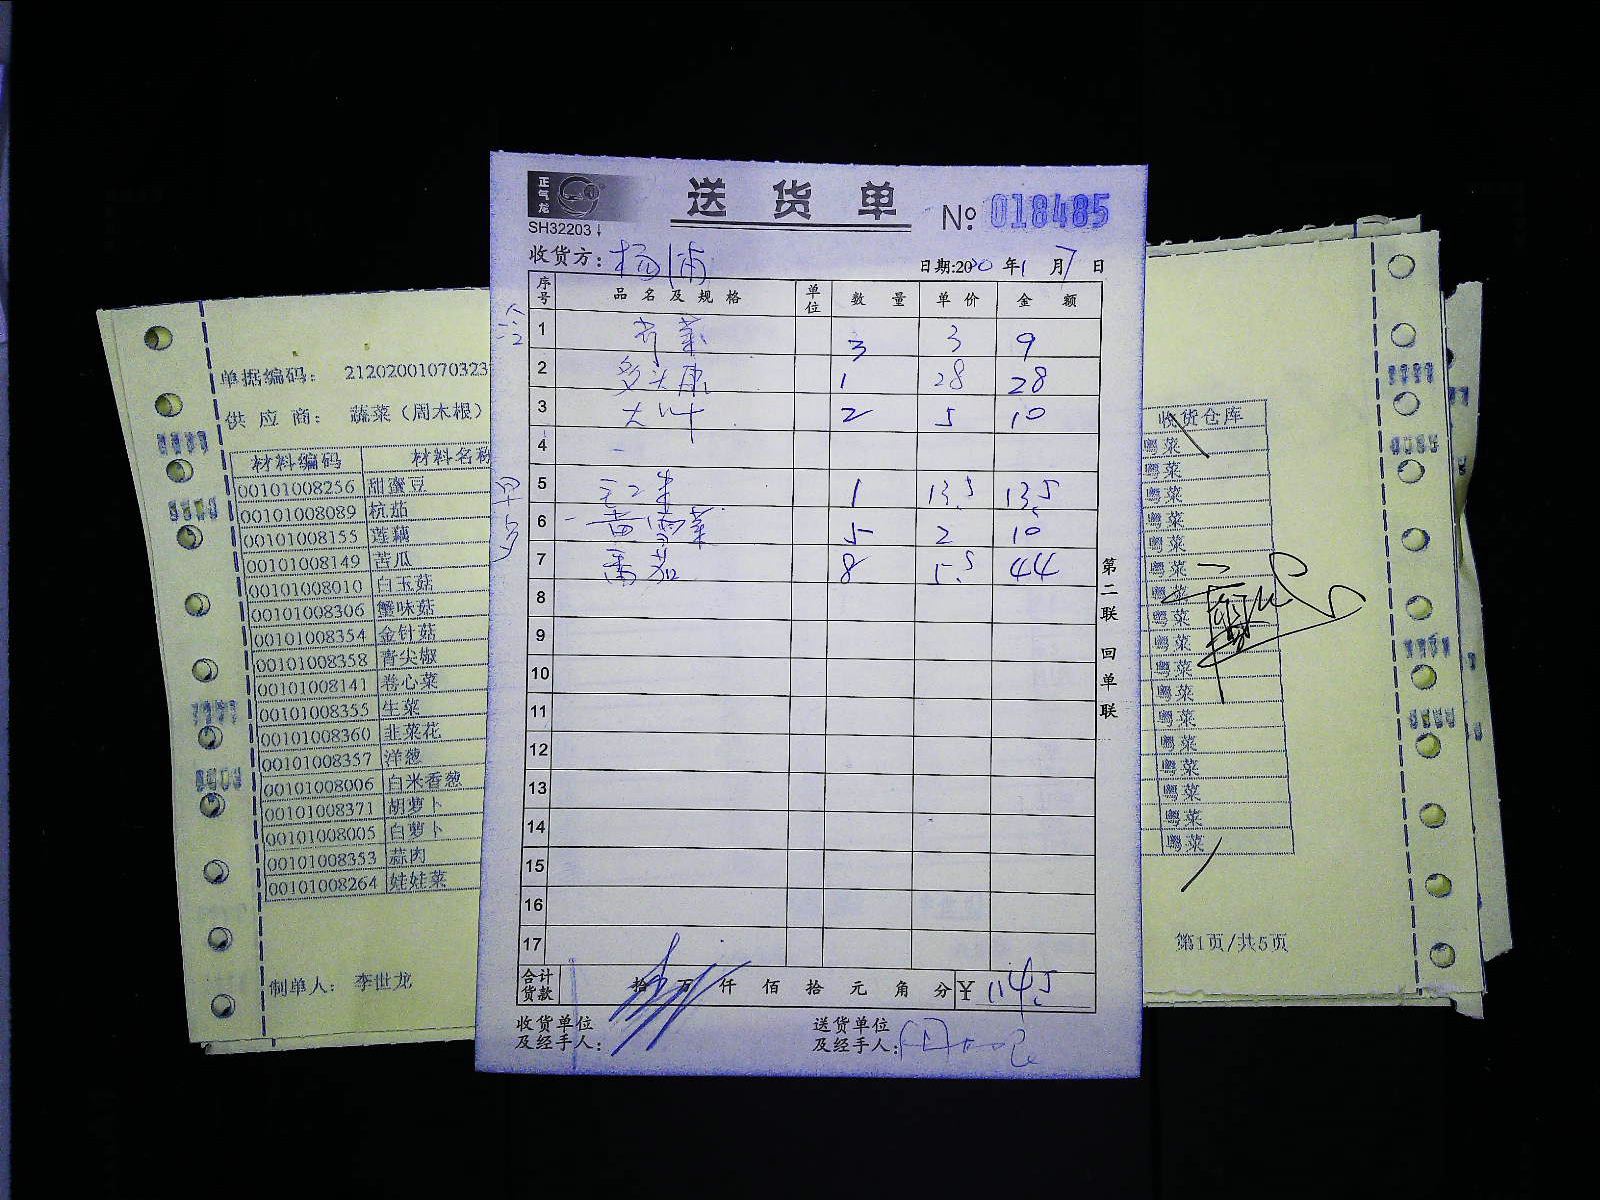 正气龙
送货单
№ 018485
SH32203
收货方：杨浦
日期:2020年1月7日
序号 品名及规格 单位 数量 单价 金额
冷
1 3 3 9
2 1 28 28
3 大叶 2 5 10
4
早
5 1 13.5 13.5
6 5 2 10
7 番茄 8 5.5 44
8
9
10
11
12
13
14
15
16
17
合计货款 拾 万 仟 佰 拾 元 角 分 ¥ 114.5
收货单位及经手人：
送货单位及经手人：
第二联 回单联
单据编码： 21202001070323
供应商： 蔬菜（周木根）
材料编码 材料名称
00101008256 甜蜜豆
00101008089 杭茄
00101008155 莲藕
00101008149 苦瓜
00101008010 白玉菇
00101008306 蟹味菇
00101008354 金针菇
00101008358 青尖椒
00101008141 卷心菜
00101008355 生菜
00101008360 韭菜花
00101008357 洋葱
00101008006 白米香葱
00101008371 胡萝卜
00101008005 白萝卜
00101008353 蒜肉
00101008264 娃娃菜
制单人： 李世龙
收货仓库
粤菜
粤菜
粤菜
粤菜
粤菜
粤菜
粤菜
粤菜
粤菜
粤菜
粤菜
粤菜
粤菜
粤菜
粤菜
粤菜
粤菜
第1页/共5页